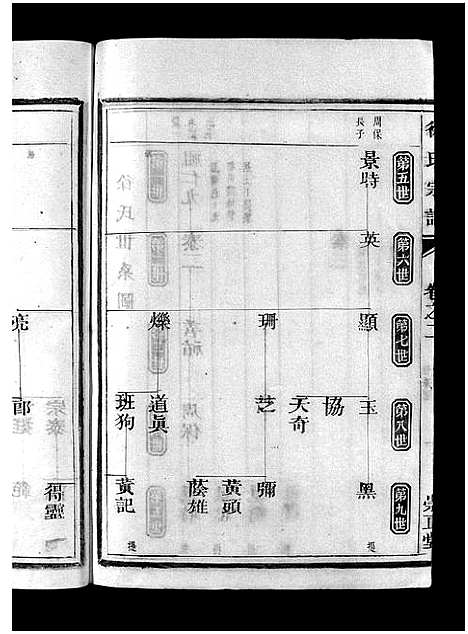 徐氏宗譜
卷之二
第五世
第六世
第七世
第八世
第九世
周保
長子
景時
英
顯
玉
黑
提
協
天奇
珊
芝
彌
黃頭
蔭雄
爍
道眞
班狗
黃記
提
得靈
亮
郎